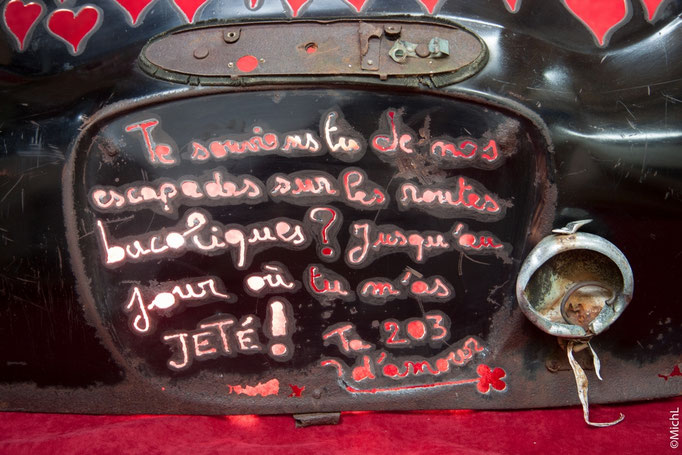 Te souviens tu de nos
escapades sur les routes
bucoliques? Jusqu'au
jour où tu m'as
JETÉ!
Ta 203
d'amour
©MichL